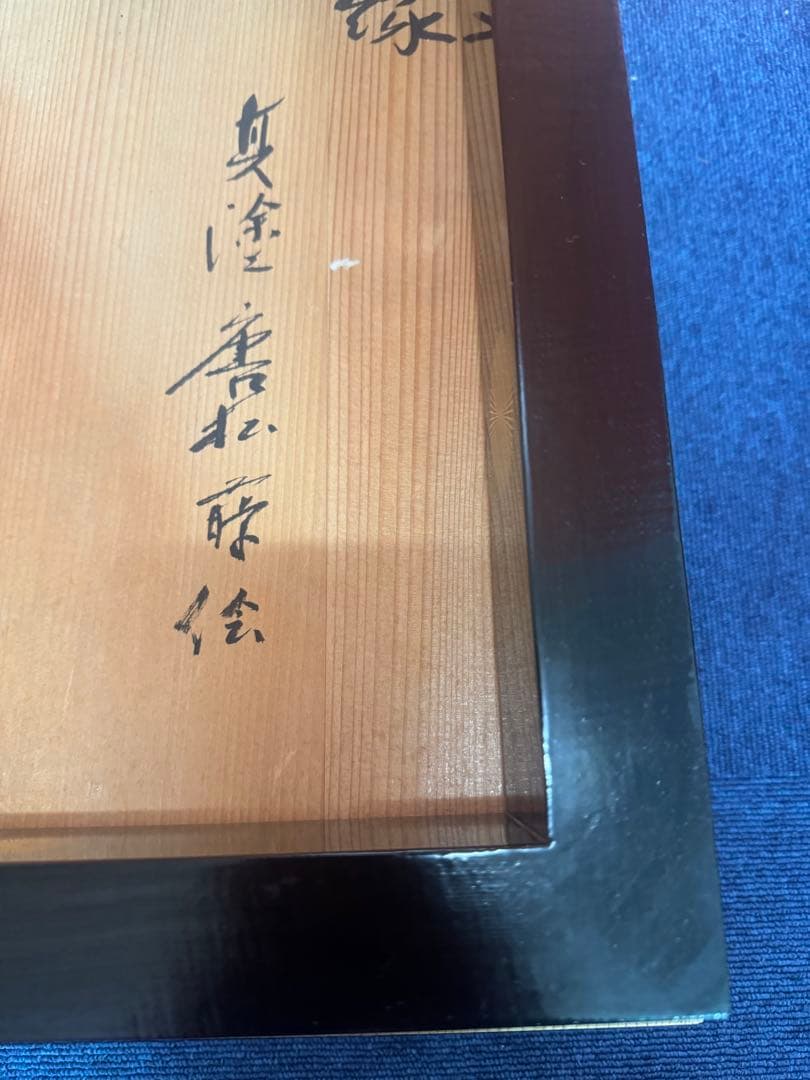 縁
真塗 唐松蒔絵